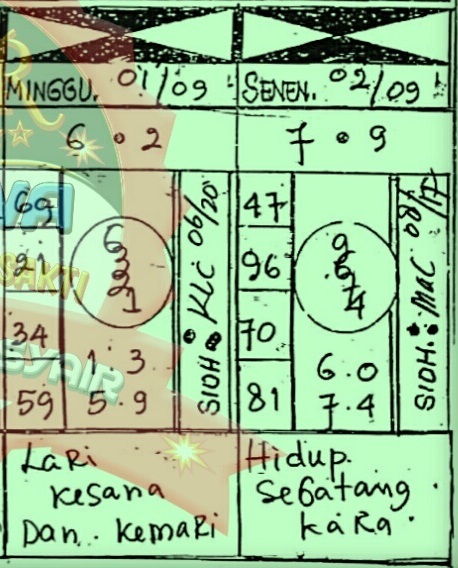 MINGGU. 01/09
SENEN. 02/09
6 • 2
7 • 9
69
21
34
59
6
3
2
1
1 . 3
5 . 9
SIOH • KLC 06/20
47
96
70
81
9
6
7
4
6 . 0
7 . 4
SIOH • MaC 08/17
LaRi
Kesana
Dan . KemaRi
Hidup
Se6atang
KaRa
SAKTI
SYAIR